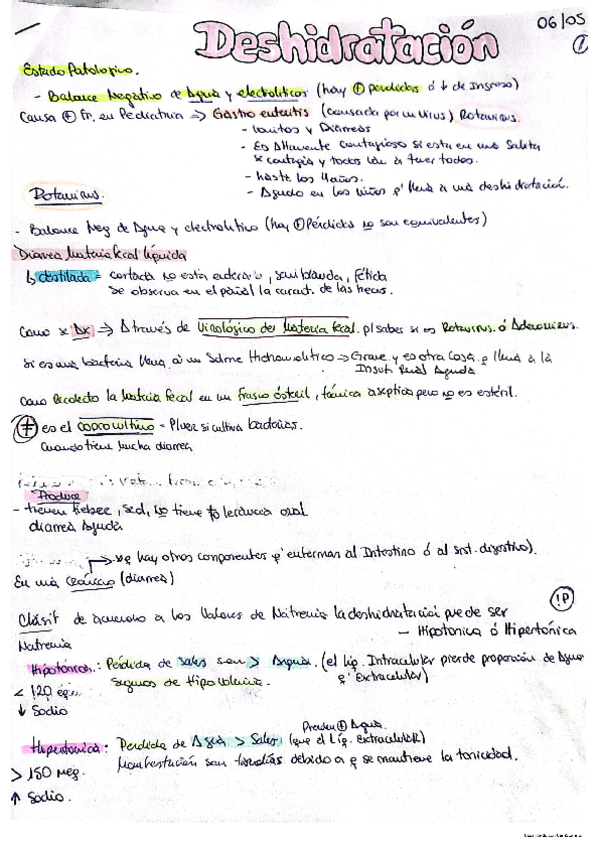 06/05
Deshidratación
1
Estado Patologico.
- Balance Negativo de Agua y electroliticos (hay ⊕ perdidas ó ↓ de Ingreso)
Causa ⊕ Fr. en Pediatria => Gastro enteritis (causada por un Virus) Rotavirus.
- Vomitos y Diarreas
- Es Altamente contagioso si esta en una Salita
se contagia y todos van a tener todos.
- hasta los 4 años.
- Agudo en los niños q' lleva a una deshidratación.
Rotavirus.
- Balance Neg de Agua y electrolitico (hay ⊕ Pérdidas no son equivalentes)
Diarrea Materia fecal líquida
↳ destilada = cortada no esta entera, semiblanda, fétida
se observa en el pañal la caract. de las heces.
Como se Dx => A través de Virológico de Materia fecal. p/ saber si es Rotavirus ó Adenovirus.
Si es una bacteria lleva a un Sdme Hidrourolitico => Grave y es otra cosa q lleva a la
Insuf. Renal Aguda.
Como Recolecto la Materia fecal en un frasco éstéril, técnica aseptica pero no es estéril.
es el coprocultivo = P/ ver si cultiva bacterias.
Cuando tiene mucha diarrea
Produce
- tienen fiebre, sed, no tiene tolerancia oral
diarrea Aguda
hay otros componentes q' enferman al Intestino ó al sist. digestivo).
En una (diarrea)
!P
Clasif de acuerdo a los Valores de Natremia la deshidratación puede ser
- Hipotonica ó Hipertónica
Natremia
Hipotónica: Pérdida de sales son > Agua. (el líq. Intracelular pierde proporción de Agua
q' Extracelular)
signos de Hipovolemia.
< 120
↓ Sodio
Pierden ⊕ Agua.
Hipertonica: Perdida de Agua > Sales (que el Líq. extracelular)
Manifestación son tardías debido a q se mantueve la tonicidad.
> 150 meq.
↑ Sodio.